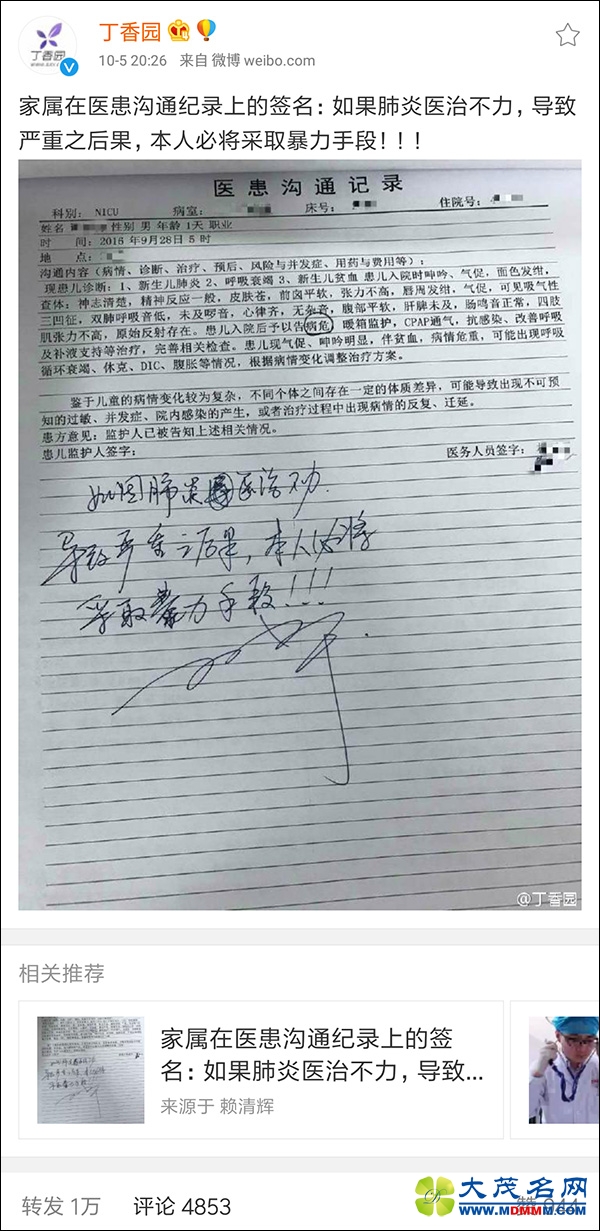 丁香园
10-5 20:26 来自 微博 weibo.com
家属在医患沟通纪录上的签名：如果肺炎医治不力，导致
严重之后果，本人必将采取暴力手段！！！
医患沟通记录
科别： NICU 病室： 床号： 住院号：
姓名 性别 男 年龄 1天 职业
时 间：2016 年9月28日 5 时
地 点：
沟通内容（病情、诊断、治疗、预后、风险与并发症、用药与费用等）：
现患儿诊断：1、新生儿肺炎 2、呼吸衰竭 3、新生儿贫血 患儿入院时呻吟、气促，面色发绀，
查体：神志清楚，精神反应一般，皮肤苍，前囟平软，张力不高，唇周发绀，气促，可见吸气性
三凹征，双肺呼吸音低，未及啰音，心律齐，无杂音，腹部平软，肝脾未及，肠鸣音正常，四肢
肌张力不高，原始反射存在。患儿入院后予以告病危，暖箱监护，CPAP通气，抗感染、改善呼吸
及补液支持等治疗，完善相关检查。患儿现气促、呻吟明显，伴贫血，病情危重，可能出现呼吸
循环衰竭、休克、DIC、腹胀等情况，根据病情变化调整治疗方案。
鉴于儿童的病情变化较为复杂，不同个体之间存在一定的体质差异，可能导致出现不可预
知的过敏、并发症、院内感染的产生，或者治疗过程中出现病情的反复、迁延。
患方意见：监护人已被告知上述相关情况。
患儿监护人签字： 医务人员签字：
如因肺炎医治不力
导致严重之后果，本人必将
采取暴力手段！！！
@丁香园
相关推荐
家属在医患沟通纪录上的签
名：如果肺炎医治不力，导致...
来源于 赖清辉
转发 1万 评论 4853 赞 944
大茂名网
WWW.MDMMM.COM